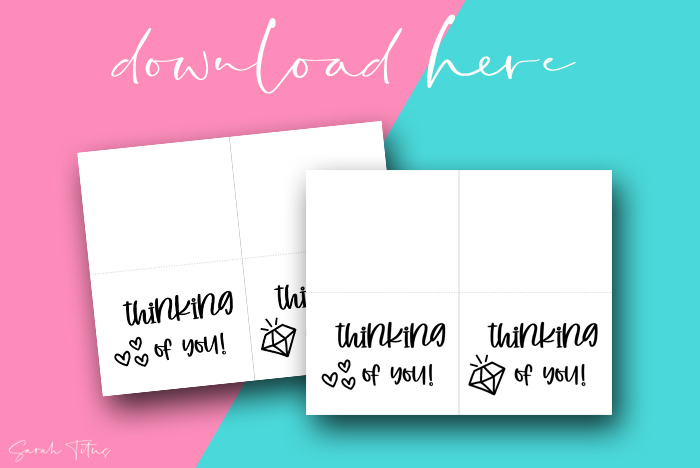 download here
thinking
of you!
thi
thinking
of you!
thinking
of you!
Sarah Titus